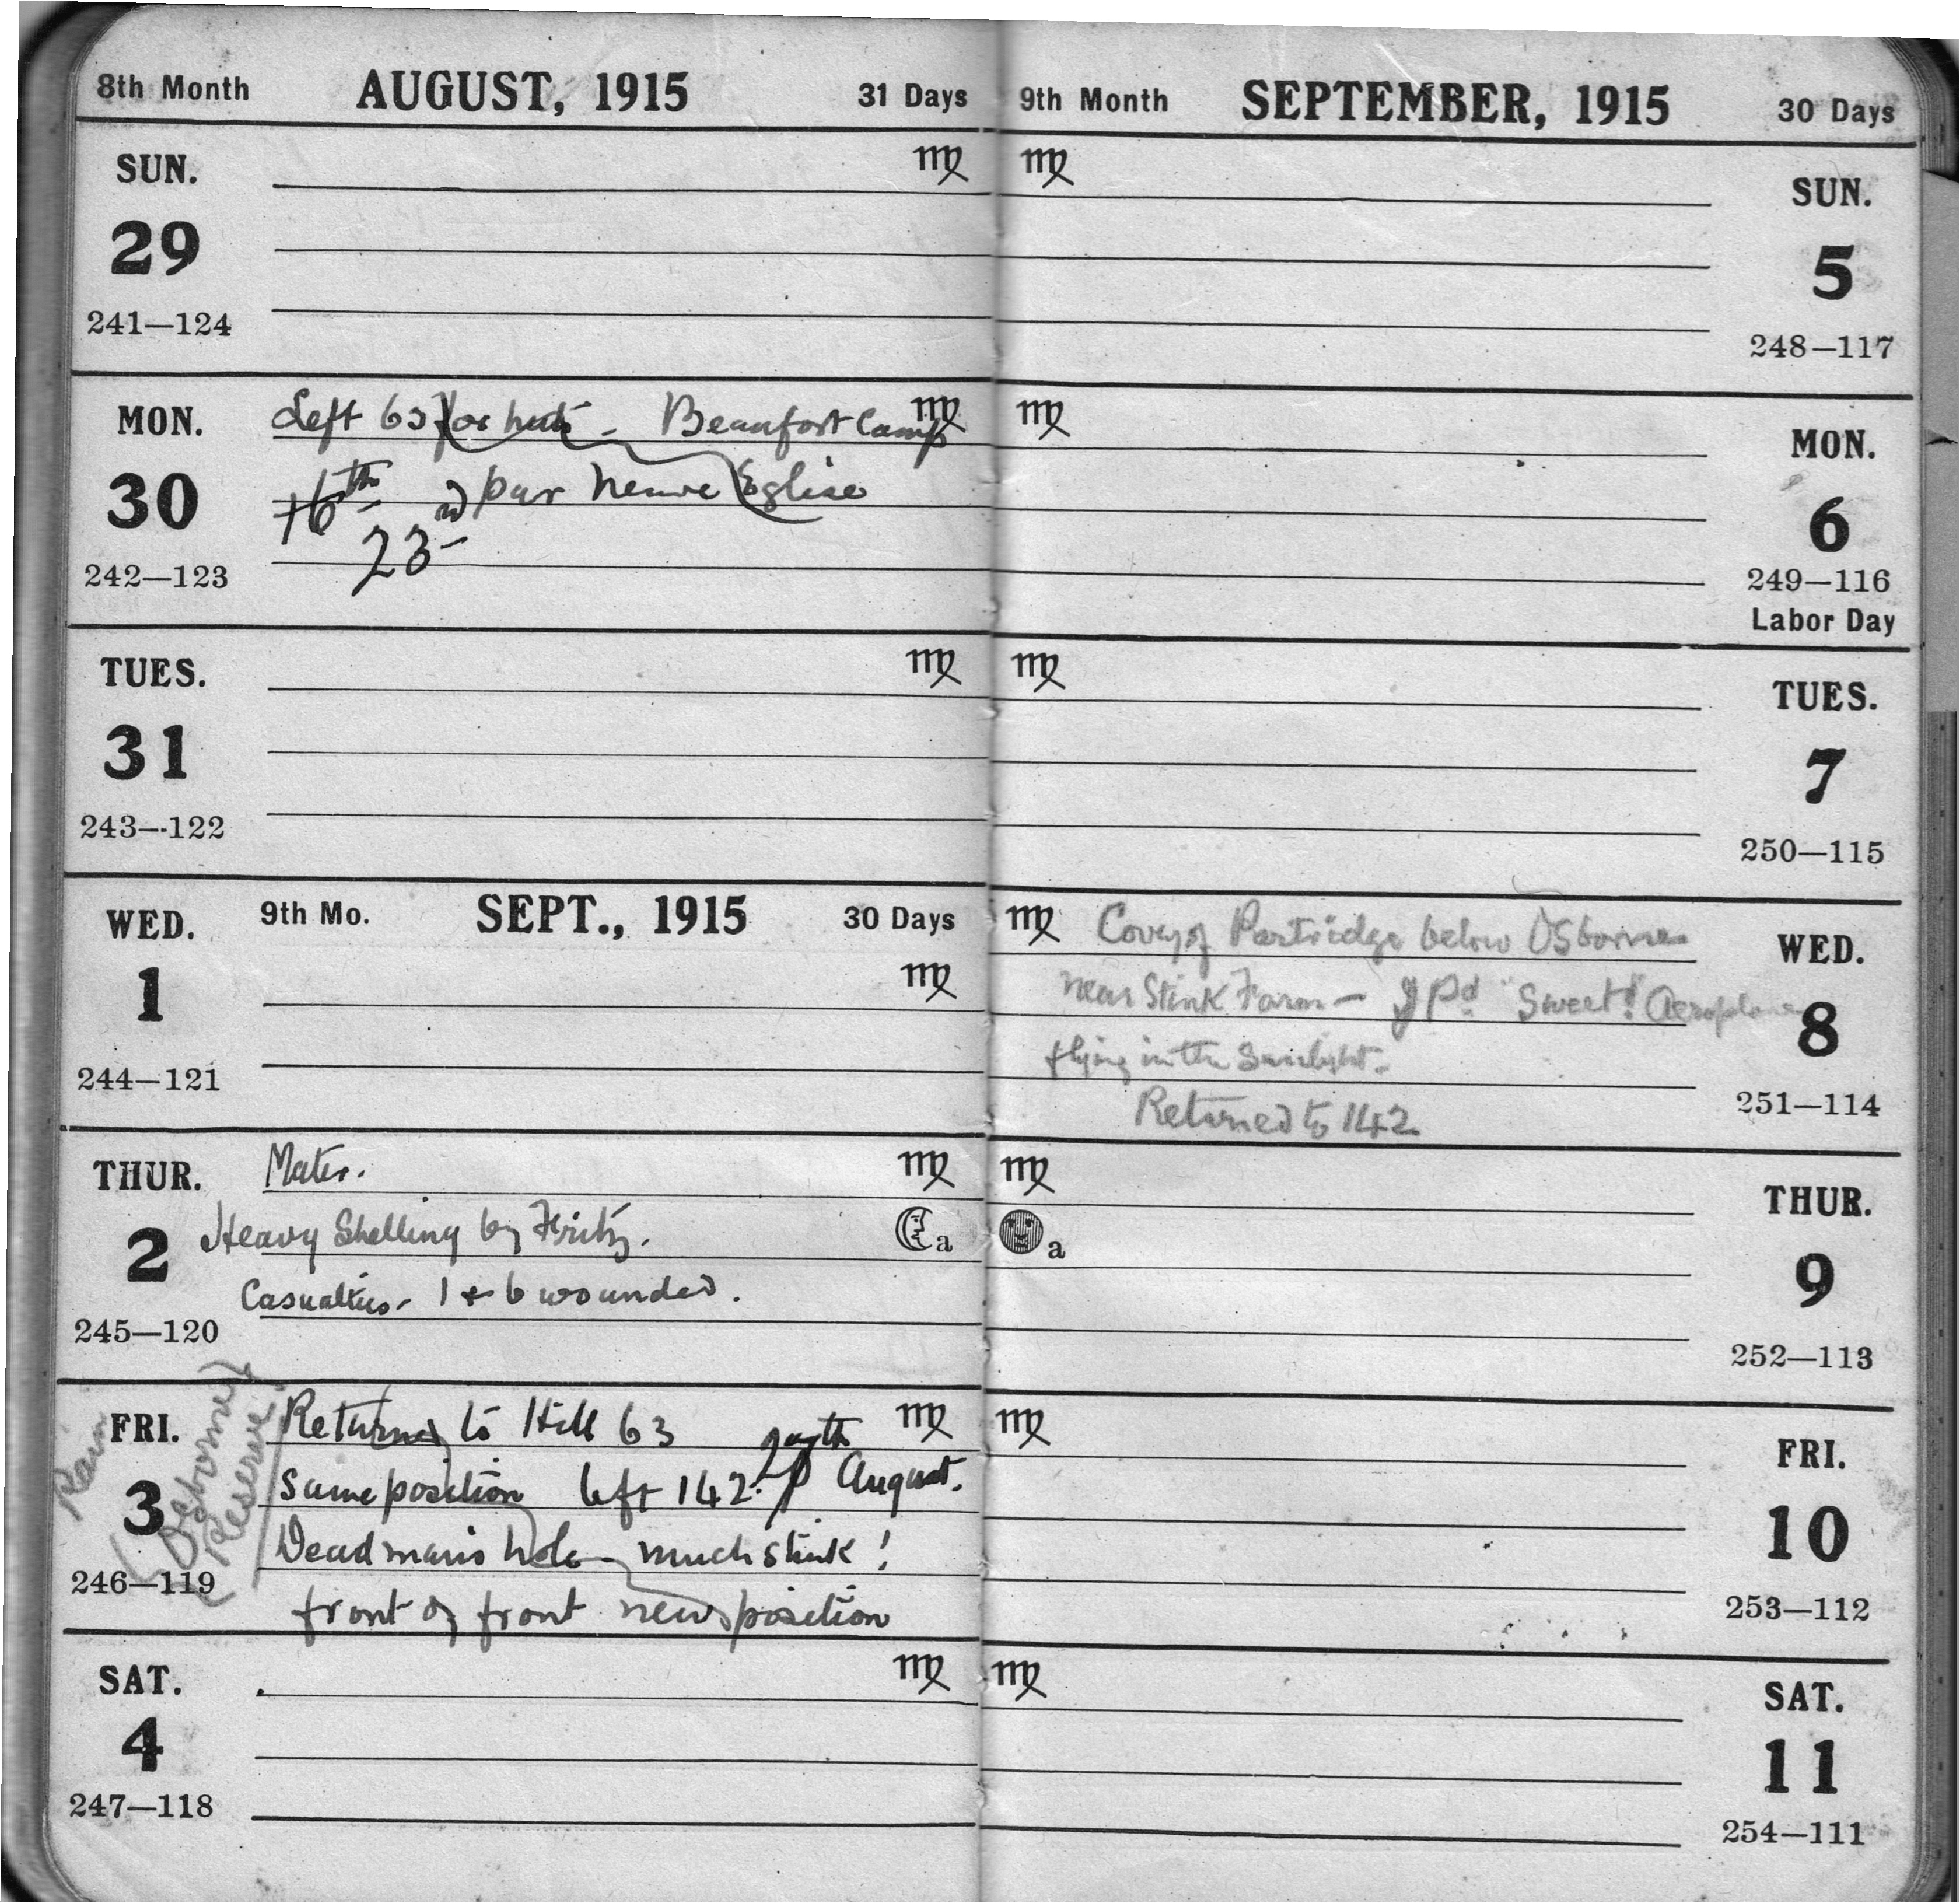 8th Month AUGUST, 1915 31 Days
SUN.
29
241—124
MON.
30
242—123
Left 63 for huts - Beaufort Camp
16th par neuve Eglise
23
TUES.
31
243—122
WED. 9th Mo. SEPT., 1915 30 Days
1
244—121
THUR.
2
245—120
Mater.
Heavy Shelling by Fritz.
Casualties - 1 + 6 wounded.
FRI.
3
246—119
Rain
(Osborne)
(Reserve)
Returned to Hill 63
same position left 142. August.
Dead man's hole - much stink!
front of front new position
SAT.
4
247—118
9th Month SEPTEMBER, 1915 30 Days
SUN.
5
248—117
MON.
6
249—116
Labor Day
TUES.
7
250—115
WED.
8
251—114
Covey of Partridge below Osborne
near Stink Farm - "Sweet" Aeroplane
flying in the Sunlight.
Returned to 142
THUR.
9
252—113
a
a
FRI.
10
253—112
SAT.
11
254—111